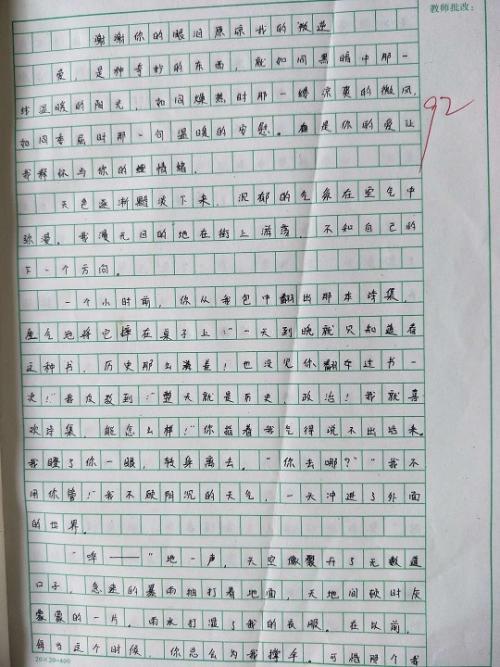 教师批改：
谢谢你的眼泪原谅我的叛逆
92
爱，是种奇妙的东西，就如同黑暗中那一
缕温暖的阳光，如同燥热时那一缕凉爽的微风，
如同委屈时那一句温暖的安慰。是你的爱让
我释怀与你的情绪。
天色逐渐黯淡下来，沉郁的气氛在空气中
弥漫。我漫无目的地在街上游荡，不知自己的
下一个方向。
一个小时前，你从我包中翻出那本诗集，
生气地将它摔在桌子上：“一天到晚就只知道看
这种书，历史那么差！也没见你翻过书一
次！”我反驳到：“整天就是历史，政治！我就喜
欢诗集，能怎么样！”你指着我气得说不出话来。
我瞪了你一眼，转身离去。“你去哪？”“我不
用你管！”我不顾阴沉的天气，一头冲进了外面
的世界。
“哗——”地一声，天空像裂开了无数道
口子，急速的暴雨拍打着地面，天地间顿时灰
蒙蒙的一片。雨水打湿了我的衣服。在以前，
每当这个时候，你总会为我撑伞。可惜那个我
20×20=400